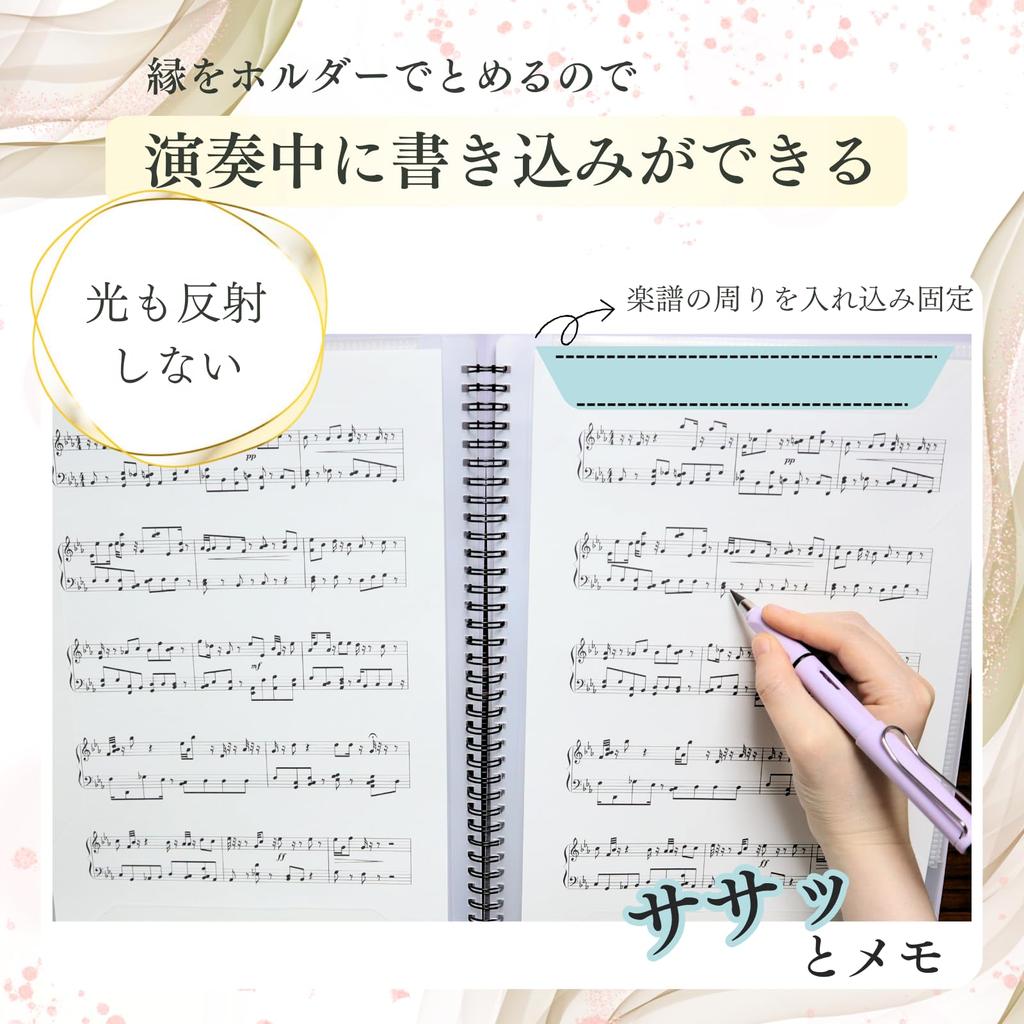 縁をホルダーでとめるので
演奏中に書き込みができる
光も反射
しない
楽譜の周りを入れ込み固定
pp
pp
mf
ff
ff
ササッ
とメモ